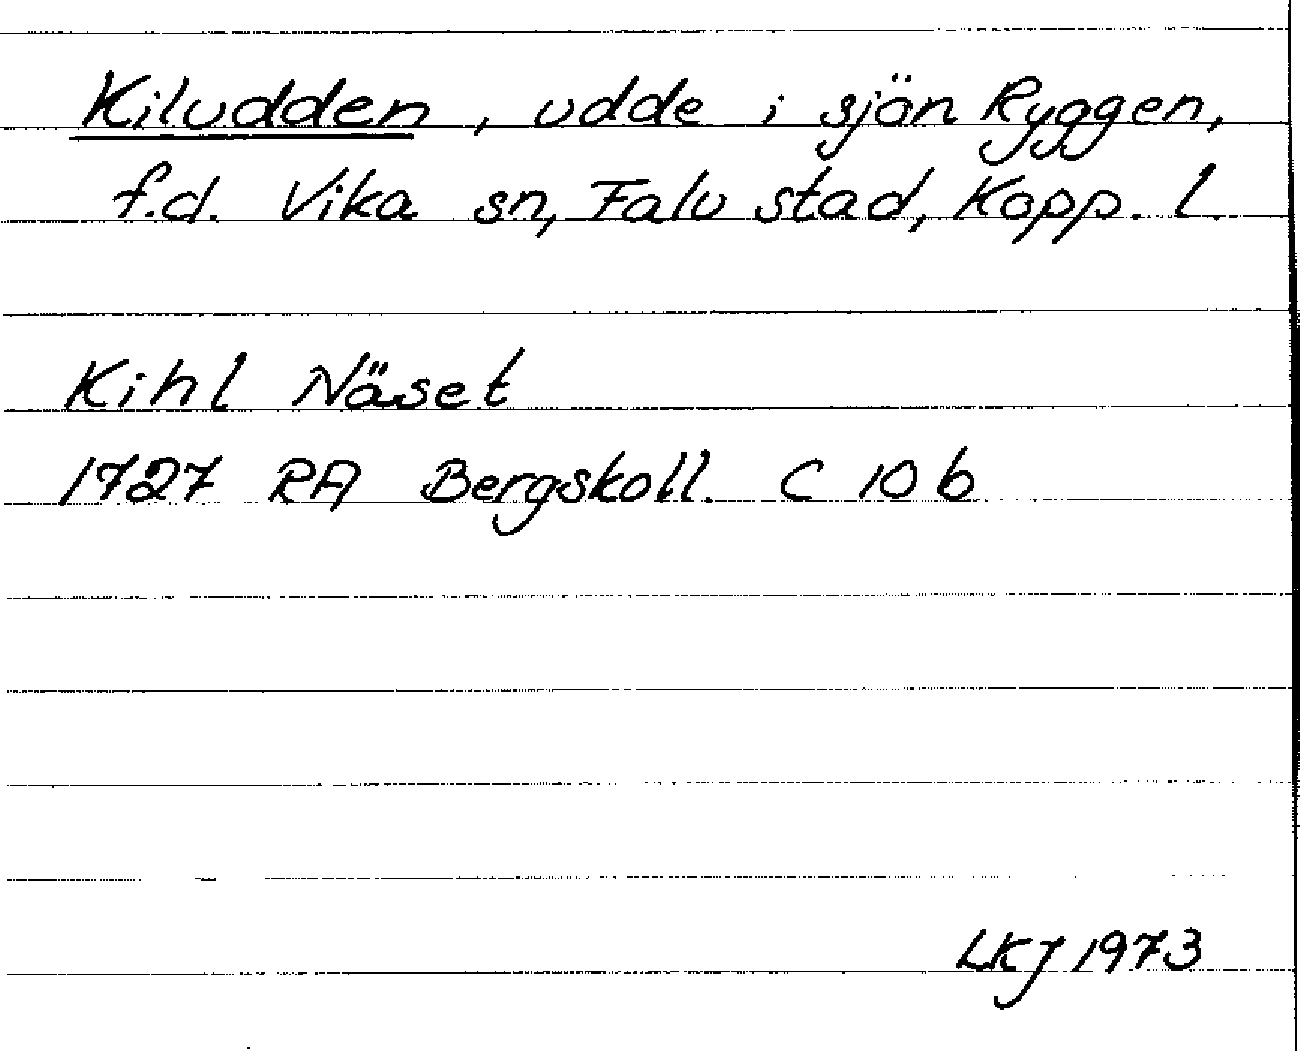 Kiludden, udde i sjön Ryggen,
f.d. Vika sn, Falu stad, Kopp. l.
Kihl Näset
1727 RA Bergskoll. C 10 b
LKJ 1973